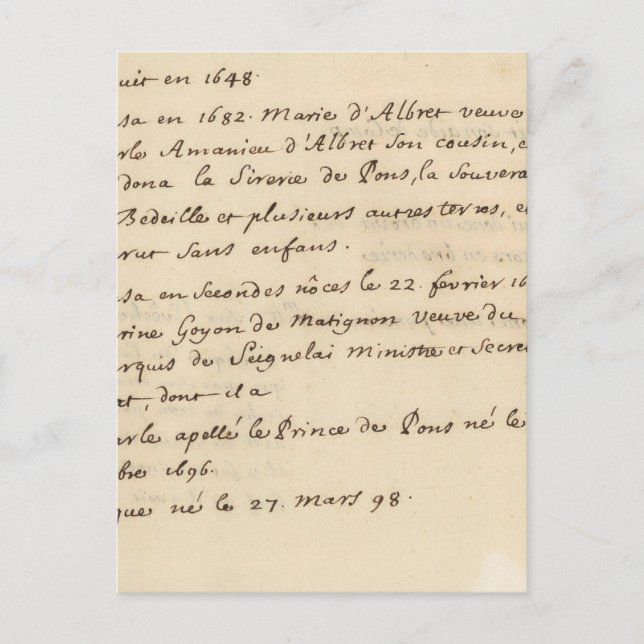 uit en 1648.
sa en 1682. Marie d'Albret veuve
rle Amanieu d'Albret son cousin, e
dona la Sirerie de Pons, la souvera
Bedeille et plusieurs autres terres, e
rut sans enfans.
sa en secondes nôces le 22. fevrier 16
rine Goyon de Matignon veuve du
rquis de Seignelai Ministre et Secre
at, dont il a
arle apellé le Prince de Pons né le
bre 1696.
que né le 27. Mars 98.